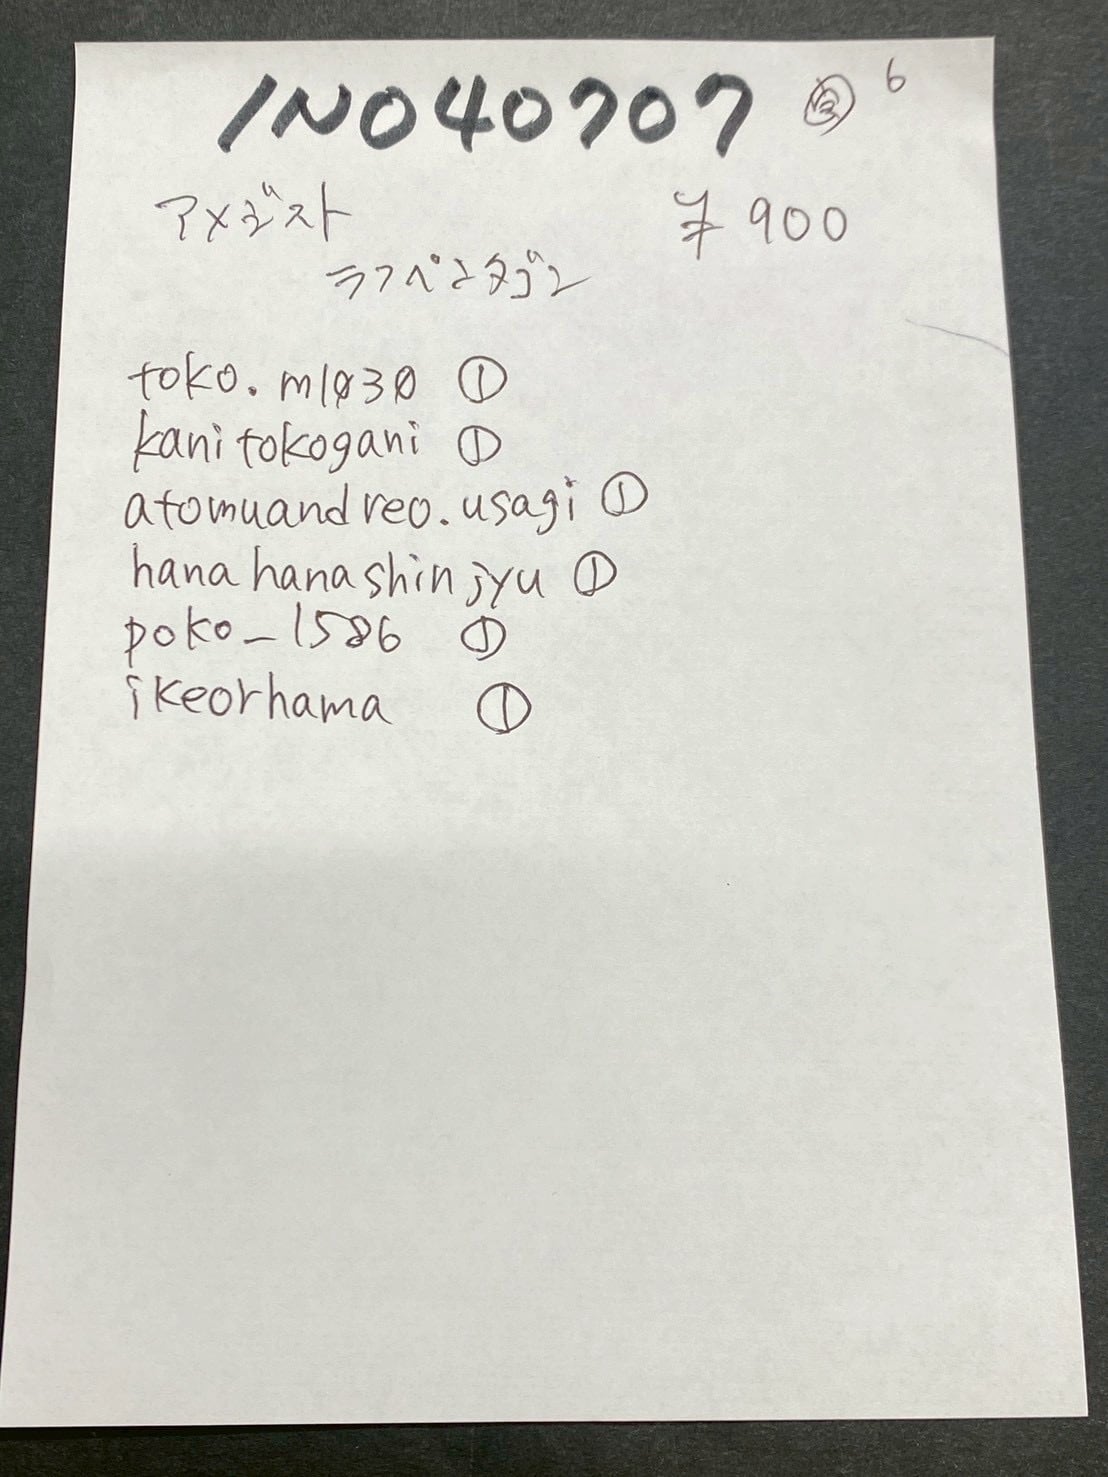 INO40707 6
アメジスト ¥900
ラフペンタゴン
toko.m1030 ①
kanitokogani ①
atomuandreo.usagi ①
hanahanashinjyu ①
poko_1586 ①
ikeorhama ①